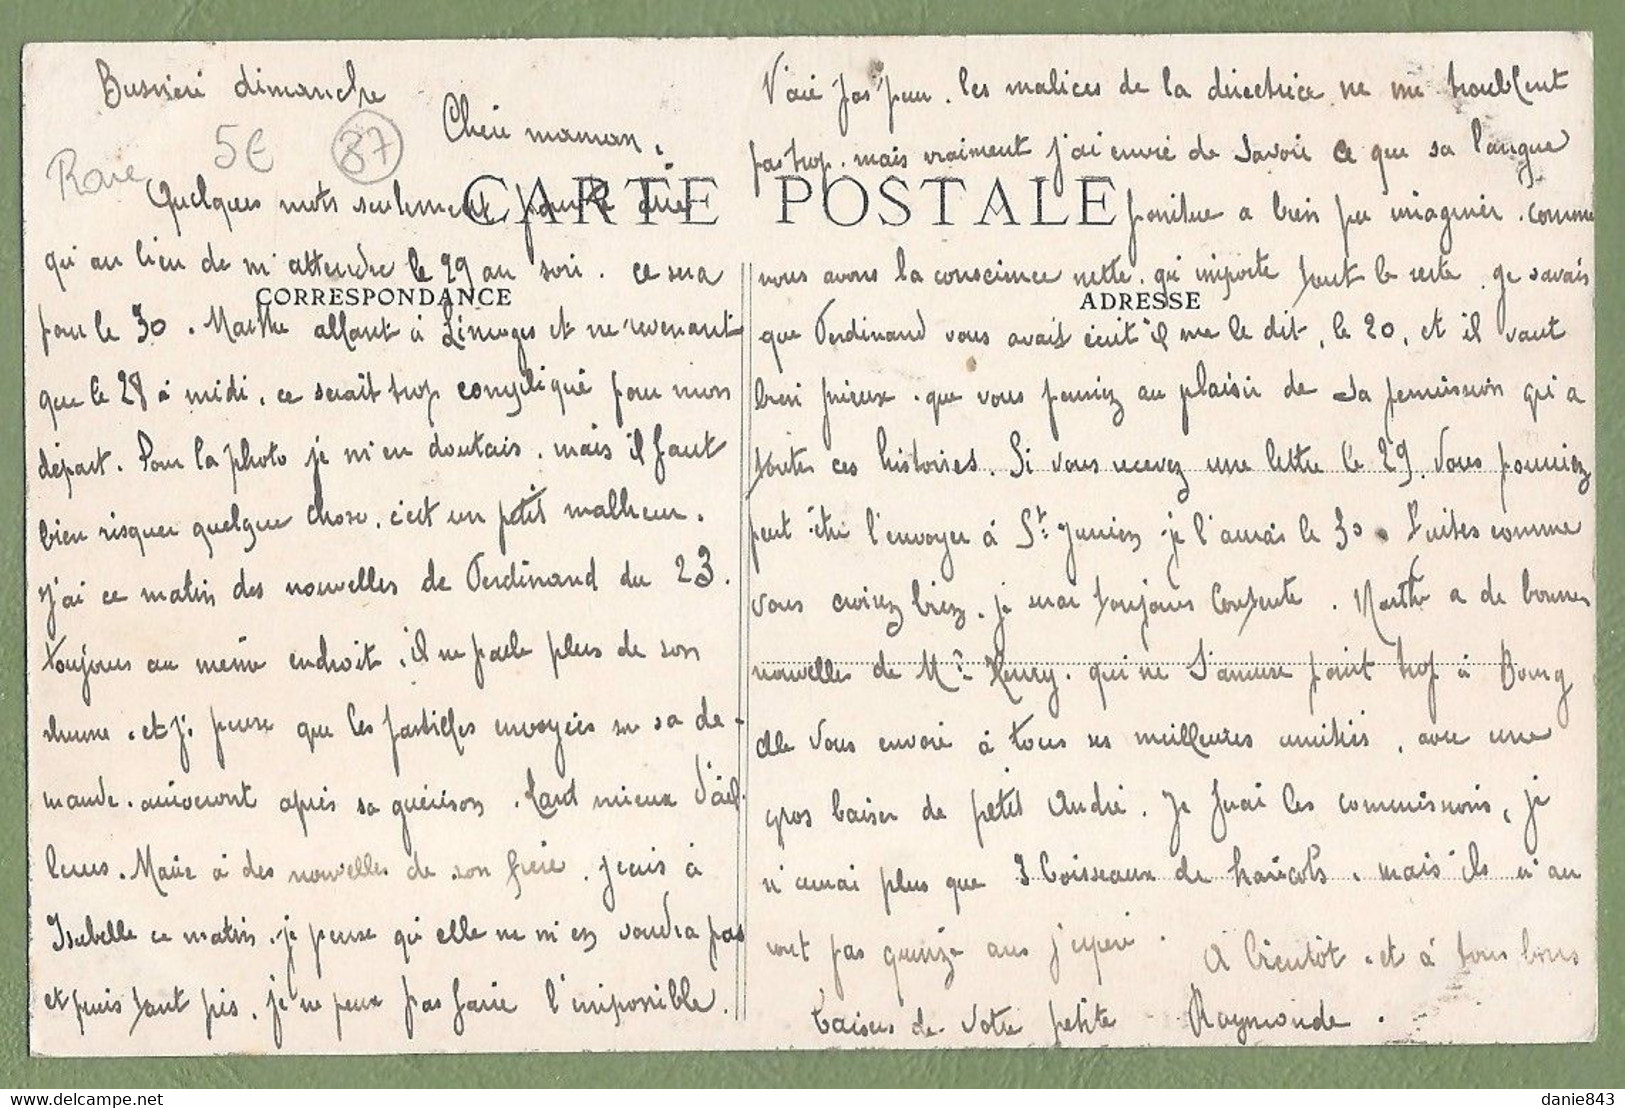 Busnière dimanche
Chère maman,
Rare 5€ 87
CARTE POSTALE
Quelques mots seulement pour te dire
qu'au lieu de m'attendre le 29 au soir. ce sera
CORRESPONDANCE
pour le 30. Marthe allant à Limoges et ne revenant
que le 28 à midi, ce serait trop compliqué pour mon
départ. Pour la photo je m'en doutais. mais il faut
bien risquer quelque chose. c'est un petit malheur.
J'ai ce matin des nouvelles de Ferdinand du 23.
toujours au même endroit. il ne parle plus de son
rhume. et je pense que les pastilles envoyées sur sa de-
mande. arriveront après sa guérison. tant mieux d'ail-
leurs. Marie a des nouvelles de son frère. j'écris à
Isabelle ce matin. je pense qu'elle ne m'en voudra pas
et puis tant pis. je ne peux pas faire l'impossible.
N'aie pas peur. les malices de la directrice ne me troublent
pas trop. mais vraiment j'ai envie de savoir ce que sa langue
pointue a bien pu imaginer. comme
nous avons la conscience nette. qu'importe tout le reste. Je savais
ADRESSE
que Ferdinand vous avait écrit il me le dit, le 20, et il vaut
bien mieux. que vous pensiez au plaisir de sa permission qu'à
toutes ces histoires. Si vous recevez une lettre le 29. Vous pourriez
peut être l'envoyer à St Junien je l'aurais le 30. Faites comme
vous croirez bien. je serai toujours contente. Marthe a de bonnes
nouvelles de Mr Henry. qui ne s'amuse point trop à Bourg
elle vous envoie à tous ses meilleures amitiés, avec une
gros baiser de petit André. Je ferai les commissions, je
n'aurai plus que 3 boisseaux de haricots. mais ils n'au
ront pas quinze ans j'espère. A bientôt. et à tous bons
baisers de votre petite Raymonde.
danie843